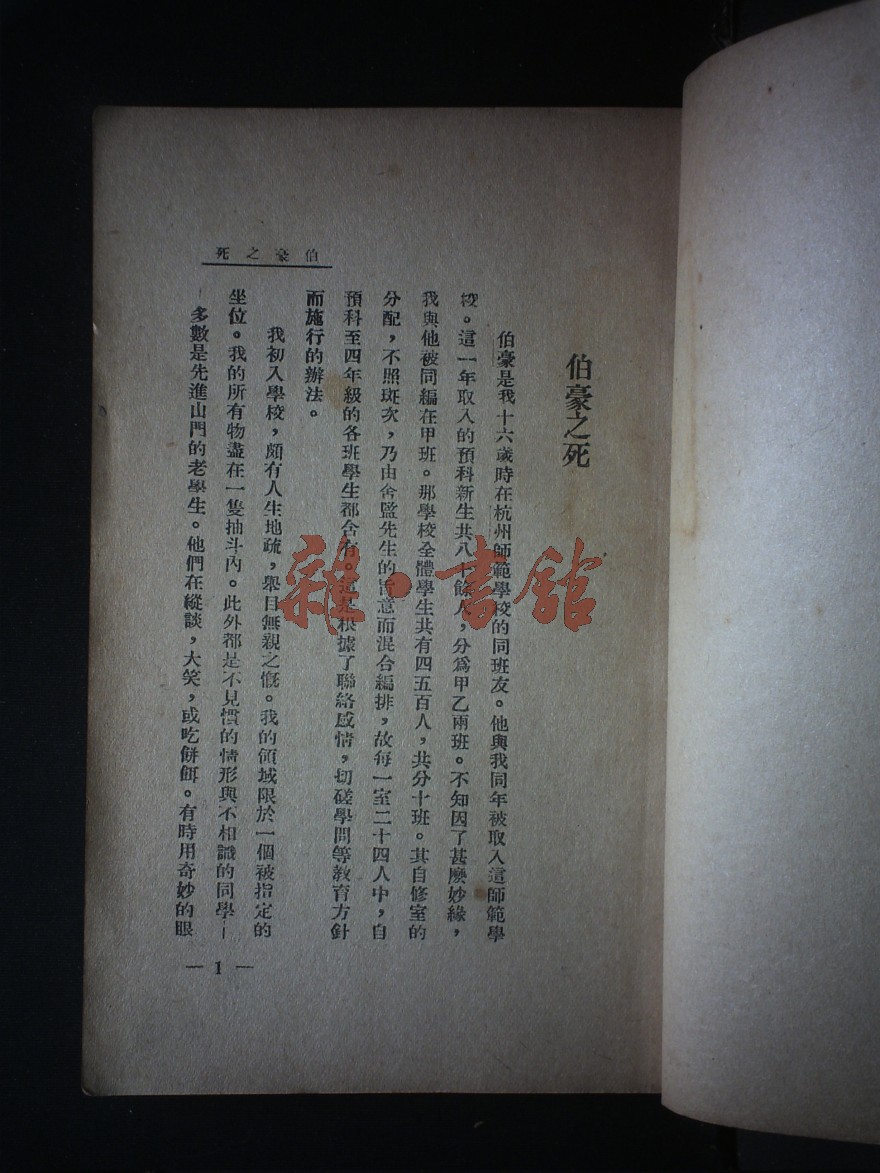 伯豪之死
伯豪之死
伯豪是我十六歲時在杭州師範學校的同班友。他與我同年被取入這師範學
校。這一年取入的預科新生共八十餘人，分爲甲乙兩班。不知因了甚麼妙緣，
我與他被同編在甲班。那學校全體學生共有四五百人，共分十班。其自修室的
分配，不照班次，乃由舍監先生的旨意而混合編排，故每一室二十四人中，自
預科至四年級的各班學生都含有。這是根據了聯絡感情，切磋學問等教育方針
而施行的辦法。
我初入學校，頗有人生地疏，舉目無親之慨。我的領域限於一個被指定的
坐位。我的所有物盡在一隻抽斗內。此外都是不見慣的情形與不相識的同學—
—多數是先進山門的老學生。他們在縱談，大笑，或吃餅餌。有時用奇妙的眼
— 1 —
雜·書館